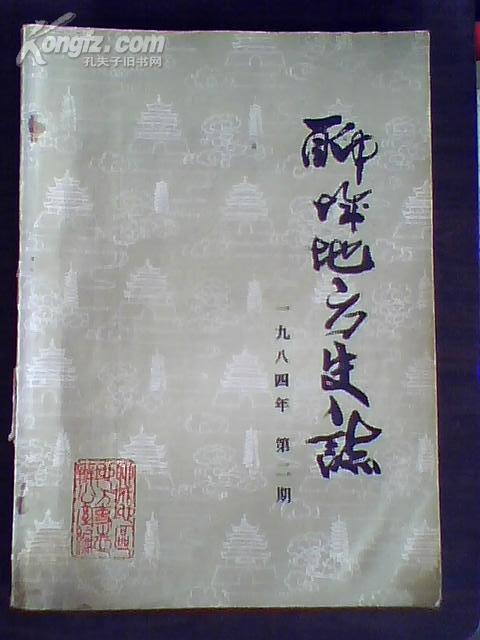 Kongfz.com
孔夫子旧书网
聊城地方史志
一九八四年 第二期